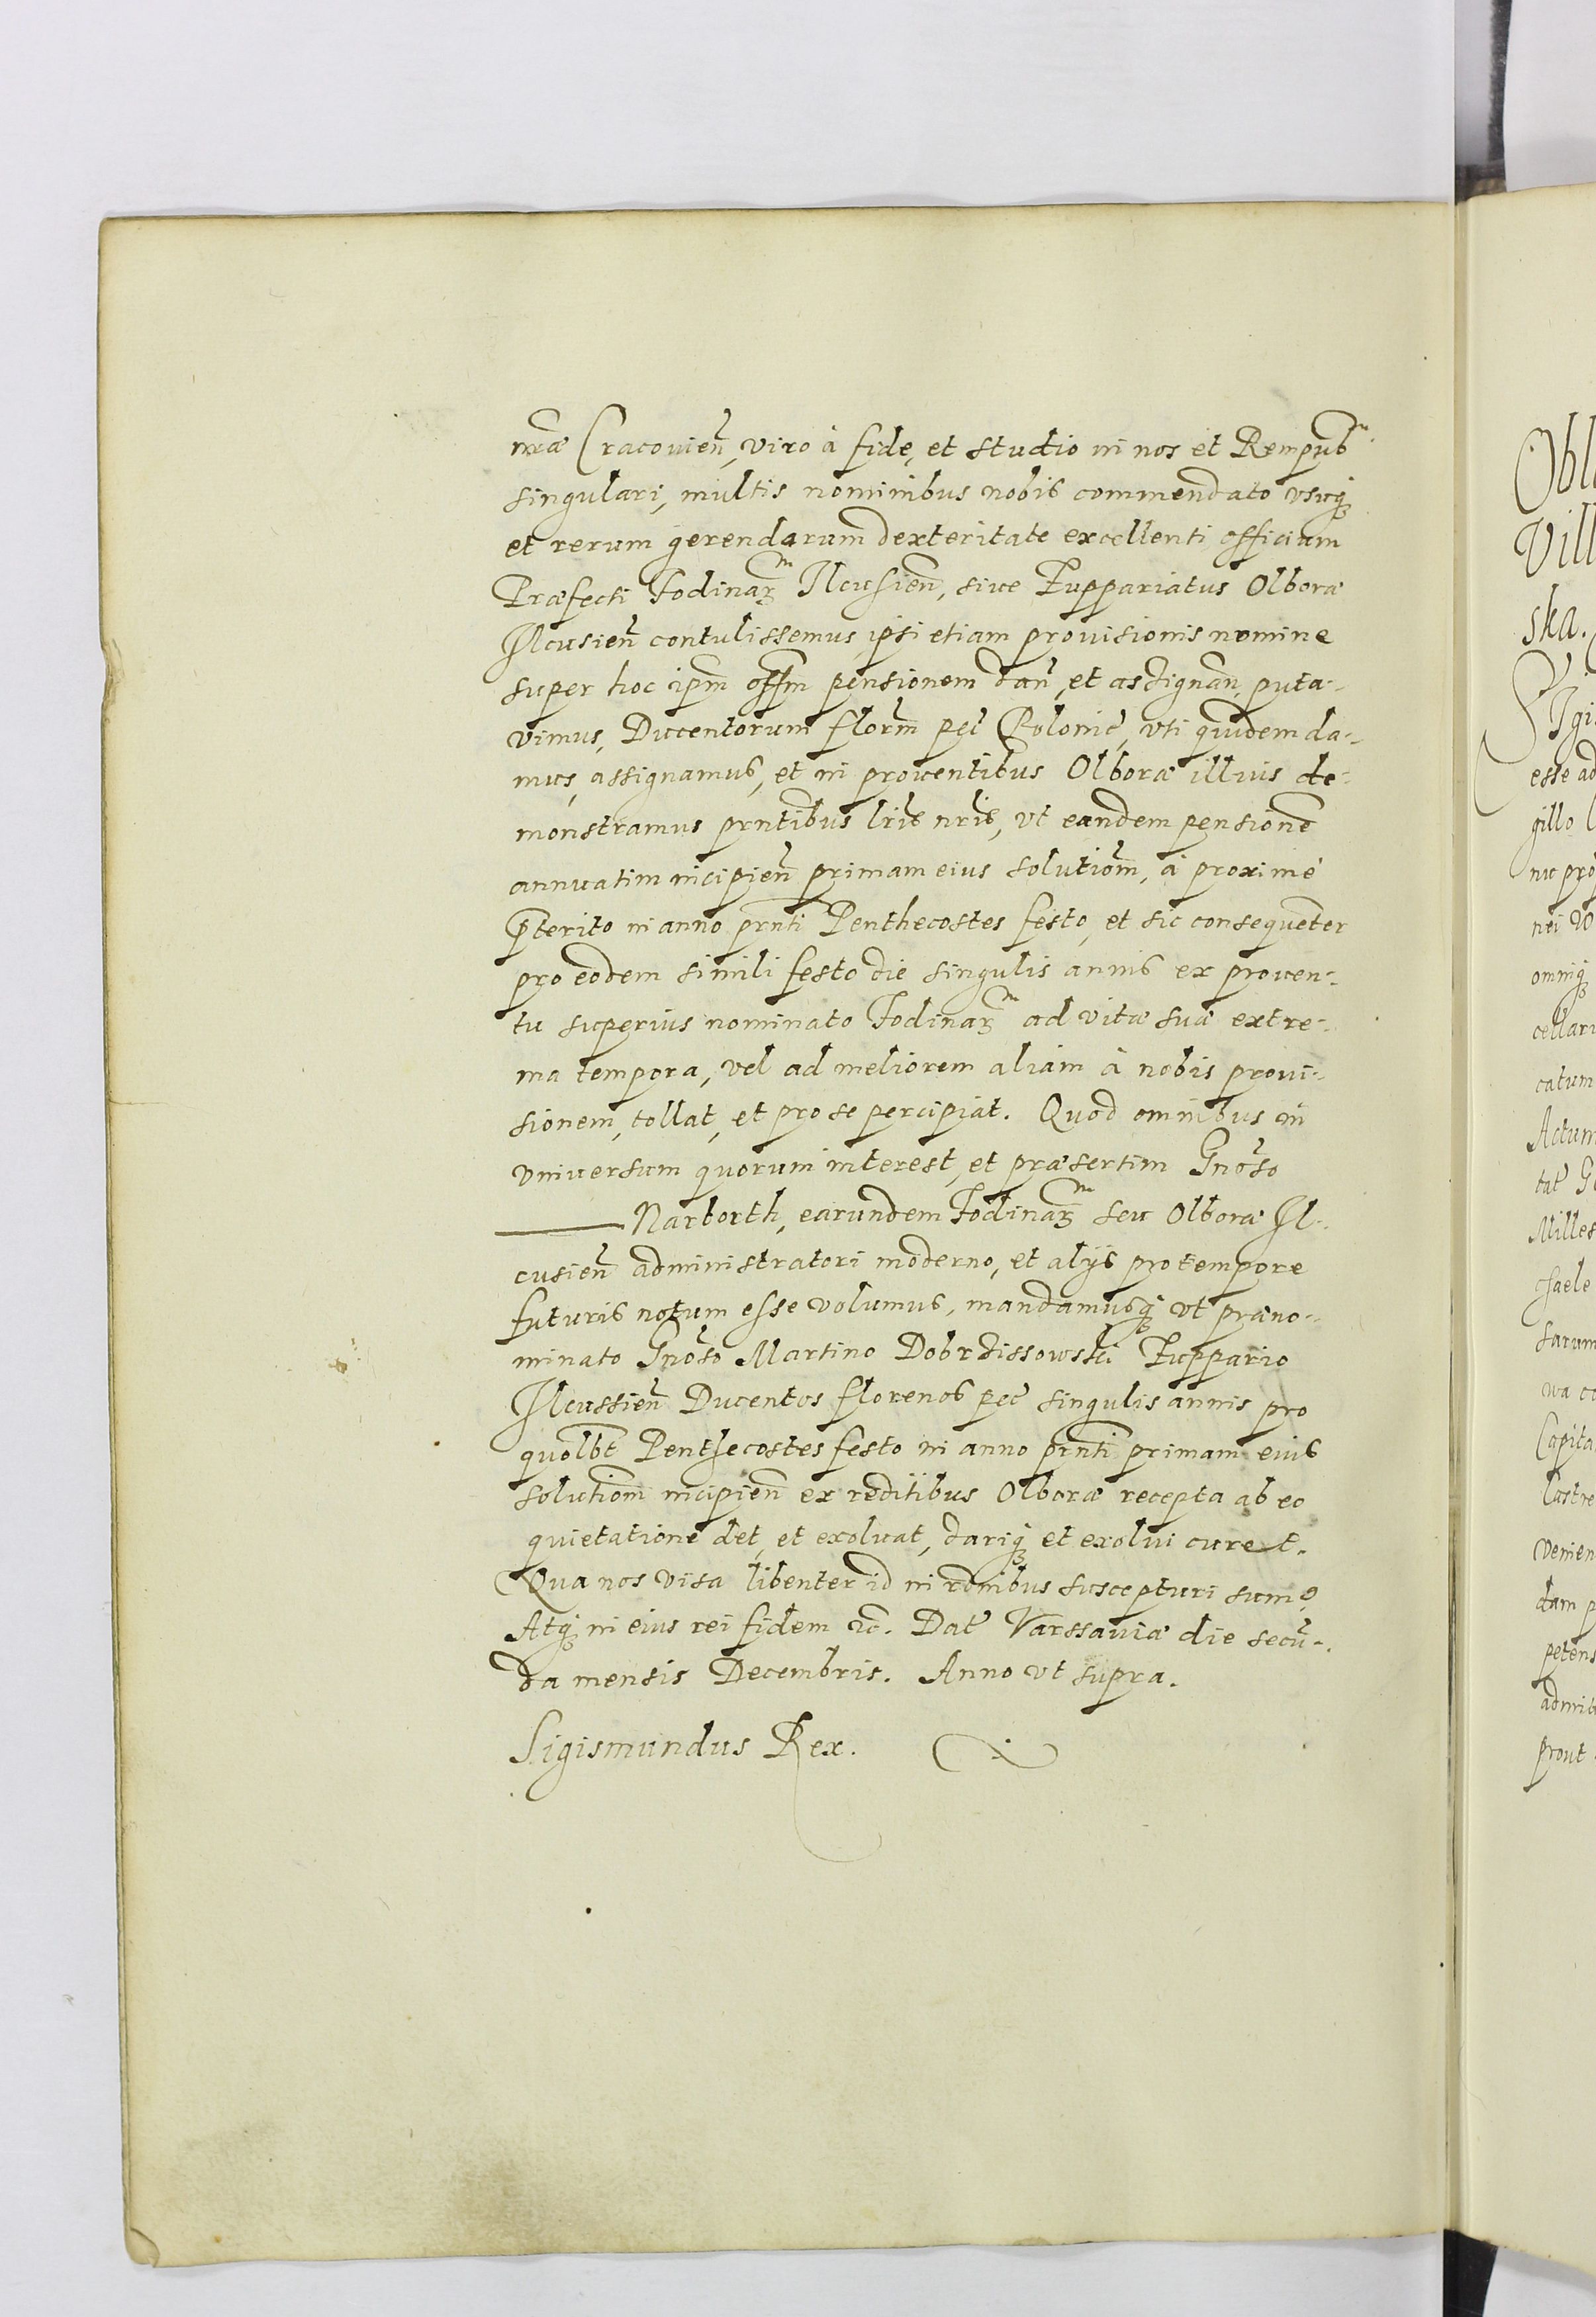 nr̃æ Cracouien̄, viro à fide, et studio in nos et Rempub̃
singulari, multis nominibus nobis commendato vsuq́
et rerum gerendarum dexteritate excellenti officium
Præfecti Fodinaꝝ Ilcusien̄, siue Zuppariatus Olboræ
Ilcusien̄ contulissemus, ipsi etiam prouisionis nomine
super hoc ipm̄ offm̄ pensionem dan̄, et assignan̄, puta-
vimus, Ducentorum florm̄ pec̄ Polonic̄, vti quidem da-
mus, assignamus, et in prouentibus Olboræ illius de-
monstramus prn̄tibus lr̄is nr̄is, vt eandem pensionē
annuatim incipien̄ primam eius solutiom̄, à proximè
p̄terito in anno prn̄ti Penthecostes festo, et sic consequenter
pro eodem simili festo die singulis annis ex prouen-
tu superius nominato Fodinaꝝ ad vitæ suæ extre-
ma tempora, vel ad meliorem aliam à nobis proui-
sionem, tollat, et pro se percipiat. Quod omnibus in
vniuersum quorum interest, et præsertim Gnōso
——— Nartorth, earundem Fodinaꝝ seu Olboræ Il-
cusien̄ administratori moderno, et alijs pro tempore
futuris notum esse volumus, mandamusq́ vt præno-
minato Gnōso Martino Dobrdissowski Zuppario
Ilcussien̄ Ducentos florenos pec̄ singulis annis pro
quolbt̄ Penthecostes festo in anno prn̄ti primam eius
solutiom̄ incipien̄ ex reditibus Olboræ recepta ab eo
quietatione det, et exoluat, dariq́ et exolui curet.
Qua nos visa libenter id in rōnibus suscepturi sum9
Atq́ in eius rei fidem ꝛc. Dat̄ Varssauiæ die secū-
da mensis Decembris. Anno vt supra.
Sigismundus Rex.
Obl
Vill
ska.
Sigi
esse ad
gillo
nu pro
nei
omniq́
cellari
catum
Actum
tat̄ G
Milles
Sarum
wa co
Capita
lastre
venien
dam p
petens
admit
prout